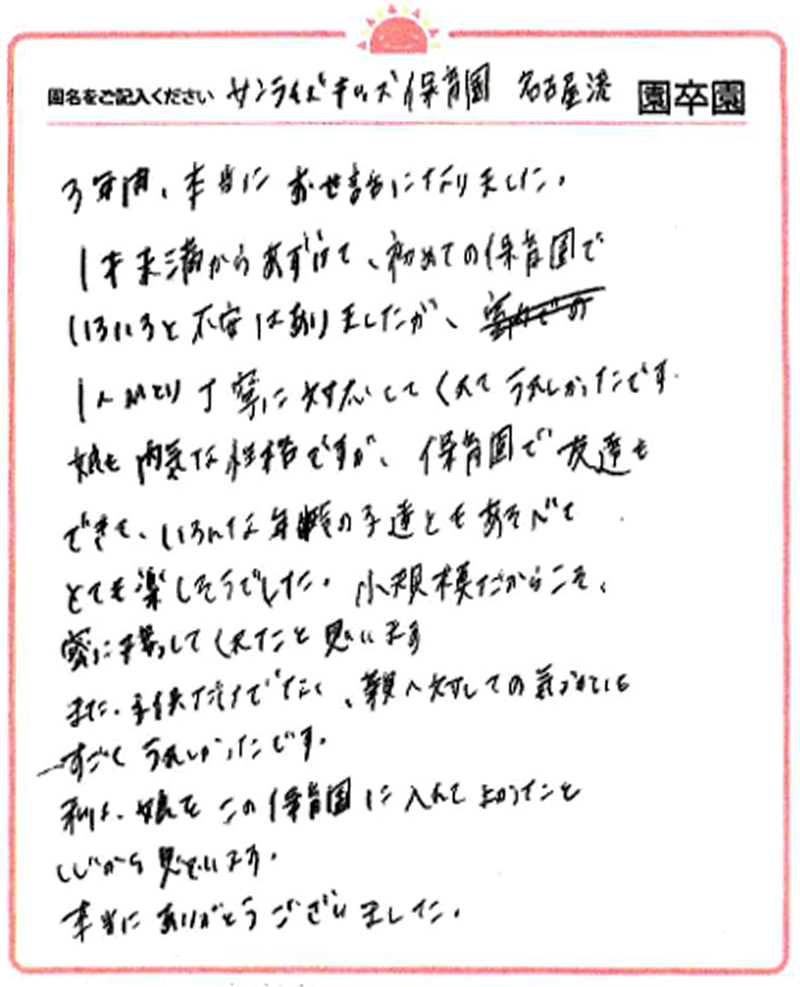 園名をご記入ください サンライズキッズ保育園 名古屋港 園卒園
3年間、本当にお世話になりました。
1才未満からあずけて、初めての保育園で
いろいろと不安はありましたが、
1人ひとり丁寧に対応してくれてうれしかったです。
娘も内気な性格ですが、保育園で友達も
できて、いろんな年齢の子達ともあそべて
とても楽しそうでした。小規模だからこそ、
密に接してくれたと思います
また、子供だけでなく、親へ対しての気づかいも
すごくうれしかったです。
私は、娘をこの保育園に入れてよかったと
心から思っています。
本当にありがとうございました。